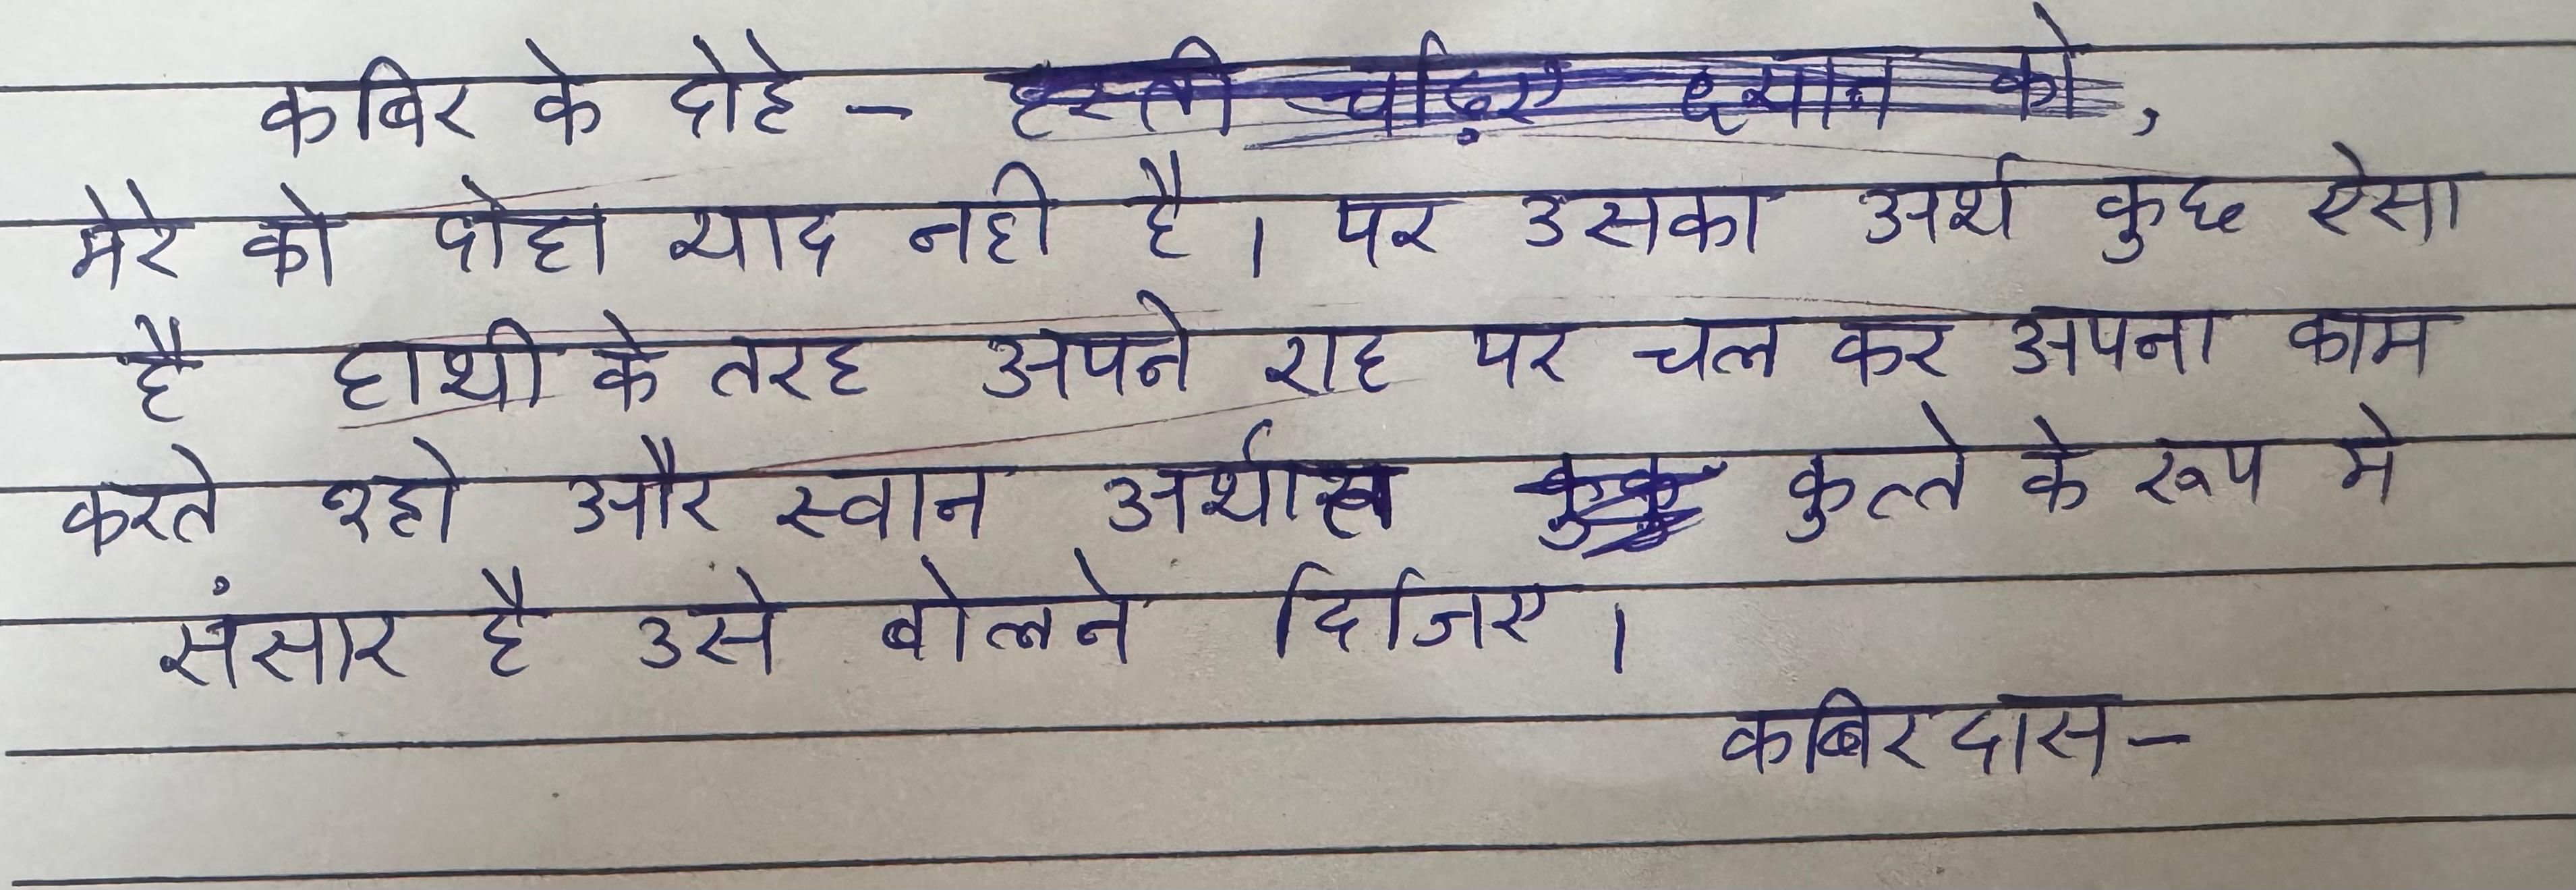 कबिर के दोहे - हस्ती चढ़िए ध्यान को,
मेरे को दोहा याद नही है। पर उसका अर्थ कुछ ऐसा
है हाथी के तरह अपने राह पर चल कर अपना काम
करते रहो और स्वान अर्थात कुत्ते के रूप मे
संसार है उसे बोलने दिजिए।
कबिर दास-